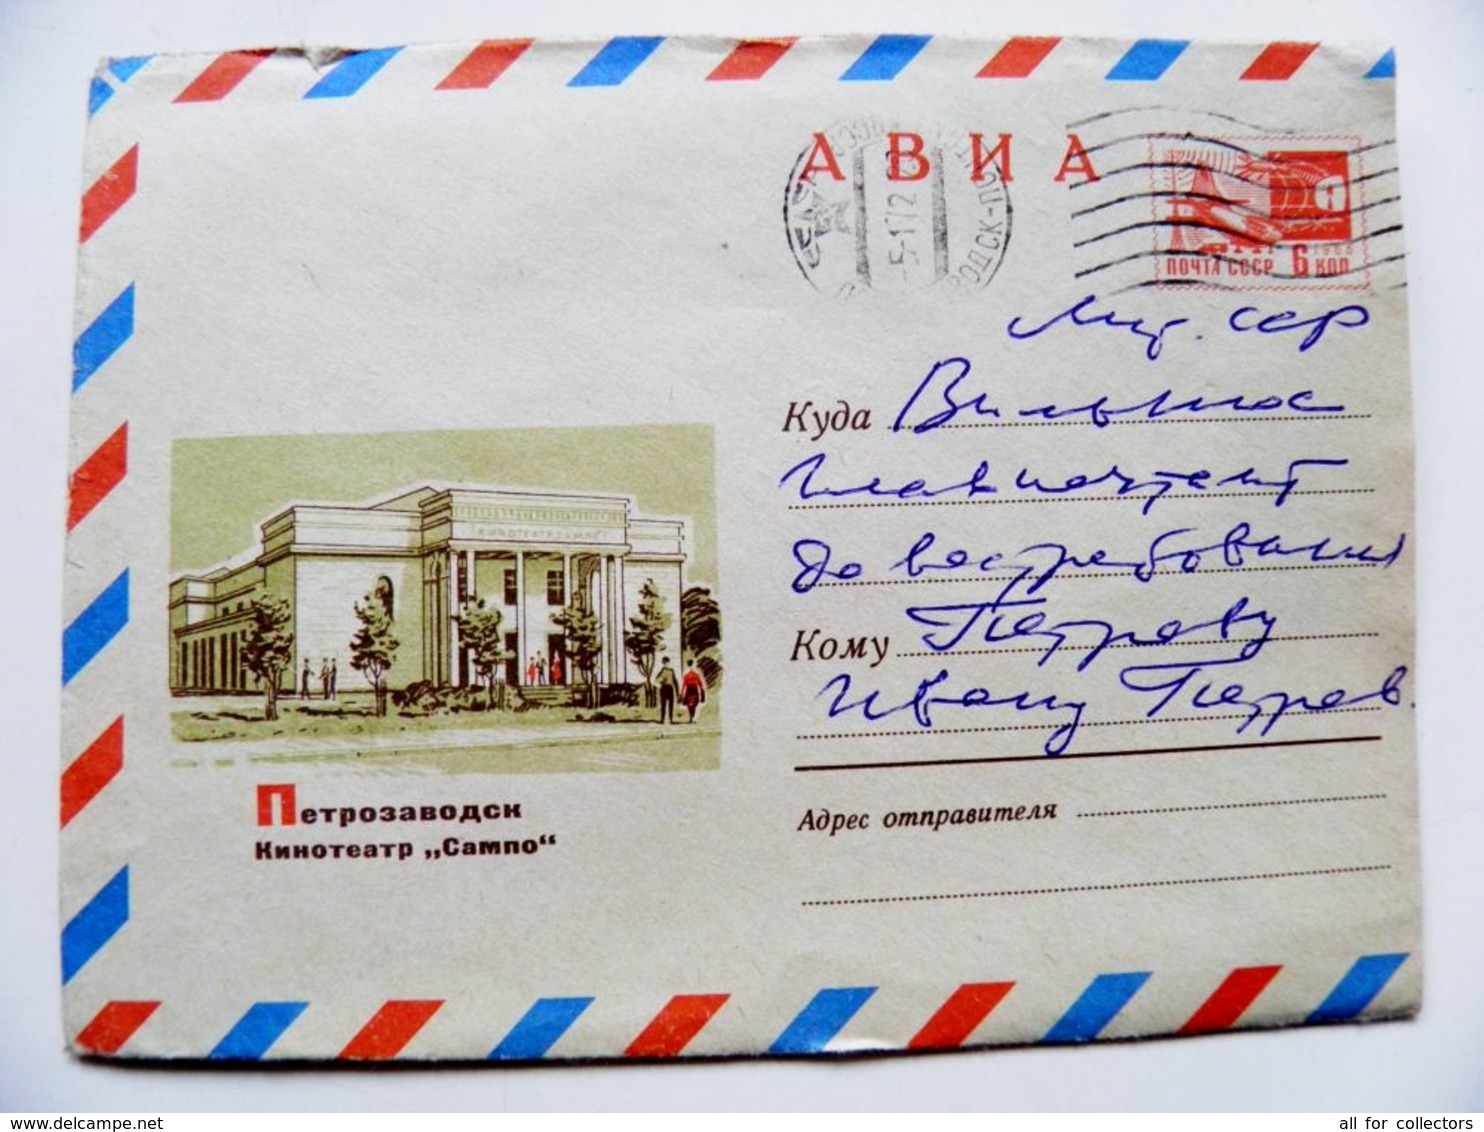 АВИА
1966
ПОЧТА СССР 6 КОП
-5-1 72
Лит. ССР
Куда Вильнюс
Главпочтамт
До востребования
Кому Петрову
Ивану Петров.
Адрес отправителя
КИНОТЕАТР САМПО
Петрозаводск
Кинотеатр „Сампо“
www.delcampe.net
all for collectors